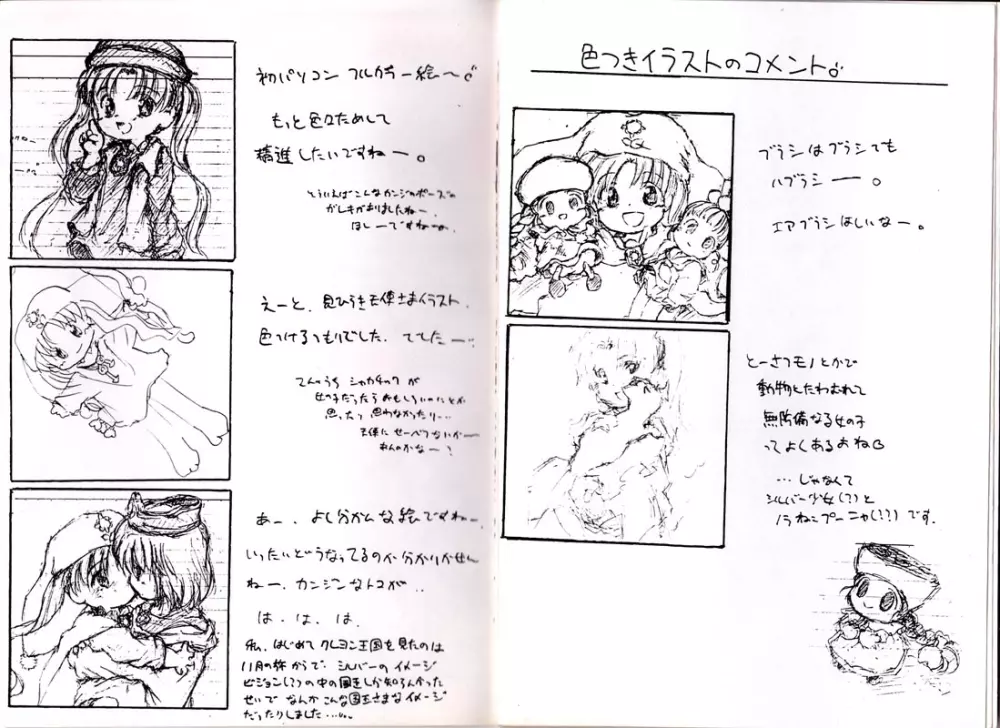 色つきイラストのコメント。
ブラシはブラシでも
ハブラシー。
エアブラシほしいなー。
とーさつモノとかで
動物とたわむれて
無防備なる女の子
ってよくあるおね
…じゃなくて
シルバー少女(?)と
ノラねこプーニャ(??)です。
初パソコン フルカラー絵〜
もっと色々ためして
精進したいですねー。
そういえばこんなカンジのポーズの
ガレキがありましたねー。
ほしーですねー。
えーと、見ひらき天使さまイラスト、
色つけるつもりでした。でしたー…
てんのうち シャカチック が
女の子だったらおもしろいのにとか
思ったり思わなかったり…
天使に せーべつないかー
あー、よく分かんな絵ですねー、
いったいどうなってるのか分かりません
ねー、カンジンなトコが…
は、は、は、
私、はじめて クレヨン王国を見たのは
11月の終からで、シルバーのイメージ
ビジョン(?)の中の国王しか知らなかった
せいで なんか こんな国王さまなイメージ
だったりしました……